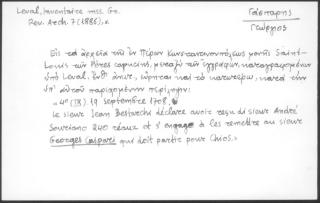 Laval, Inventaire mss. Gr.
Rev. Arch. 7 (1886), κ.
Γάσπαρης
Γεώργιος
Εἰς τὰ ἀρχεῖα τῆς ἐν Πέραν Κωνσταντινουπόλεως μονῆς Saint-
Louis τῶν Pères capucins, μεταξὺ τῶν ἐγγράφων, καταγραφομένων
ὑπὸ Laval, ἔνθ' ἀνωτ., εὕρηται καὶ τὸ κατωτέρω, κατὰ τὴν
ὑπ' αὐτοῦ παρεχομένην περίληψιν:
« 4° (IX). 19 septembre 1708.
Le sieur Jean Bestarchi déclare avoir reçu di sieur André
Soveriano 240 réaux et s'engage à les remettre au sieur
Georges Caspari qui doit partir pour Chios.»